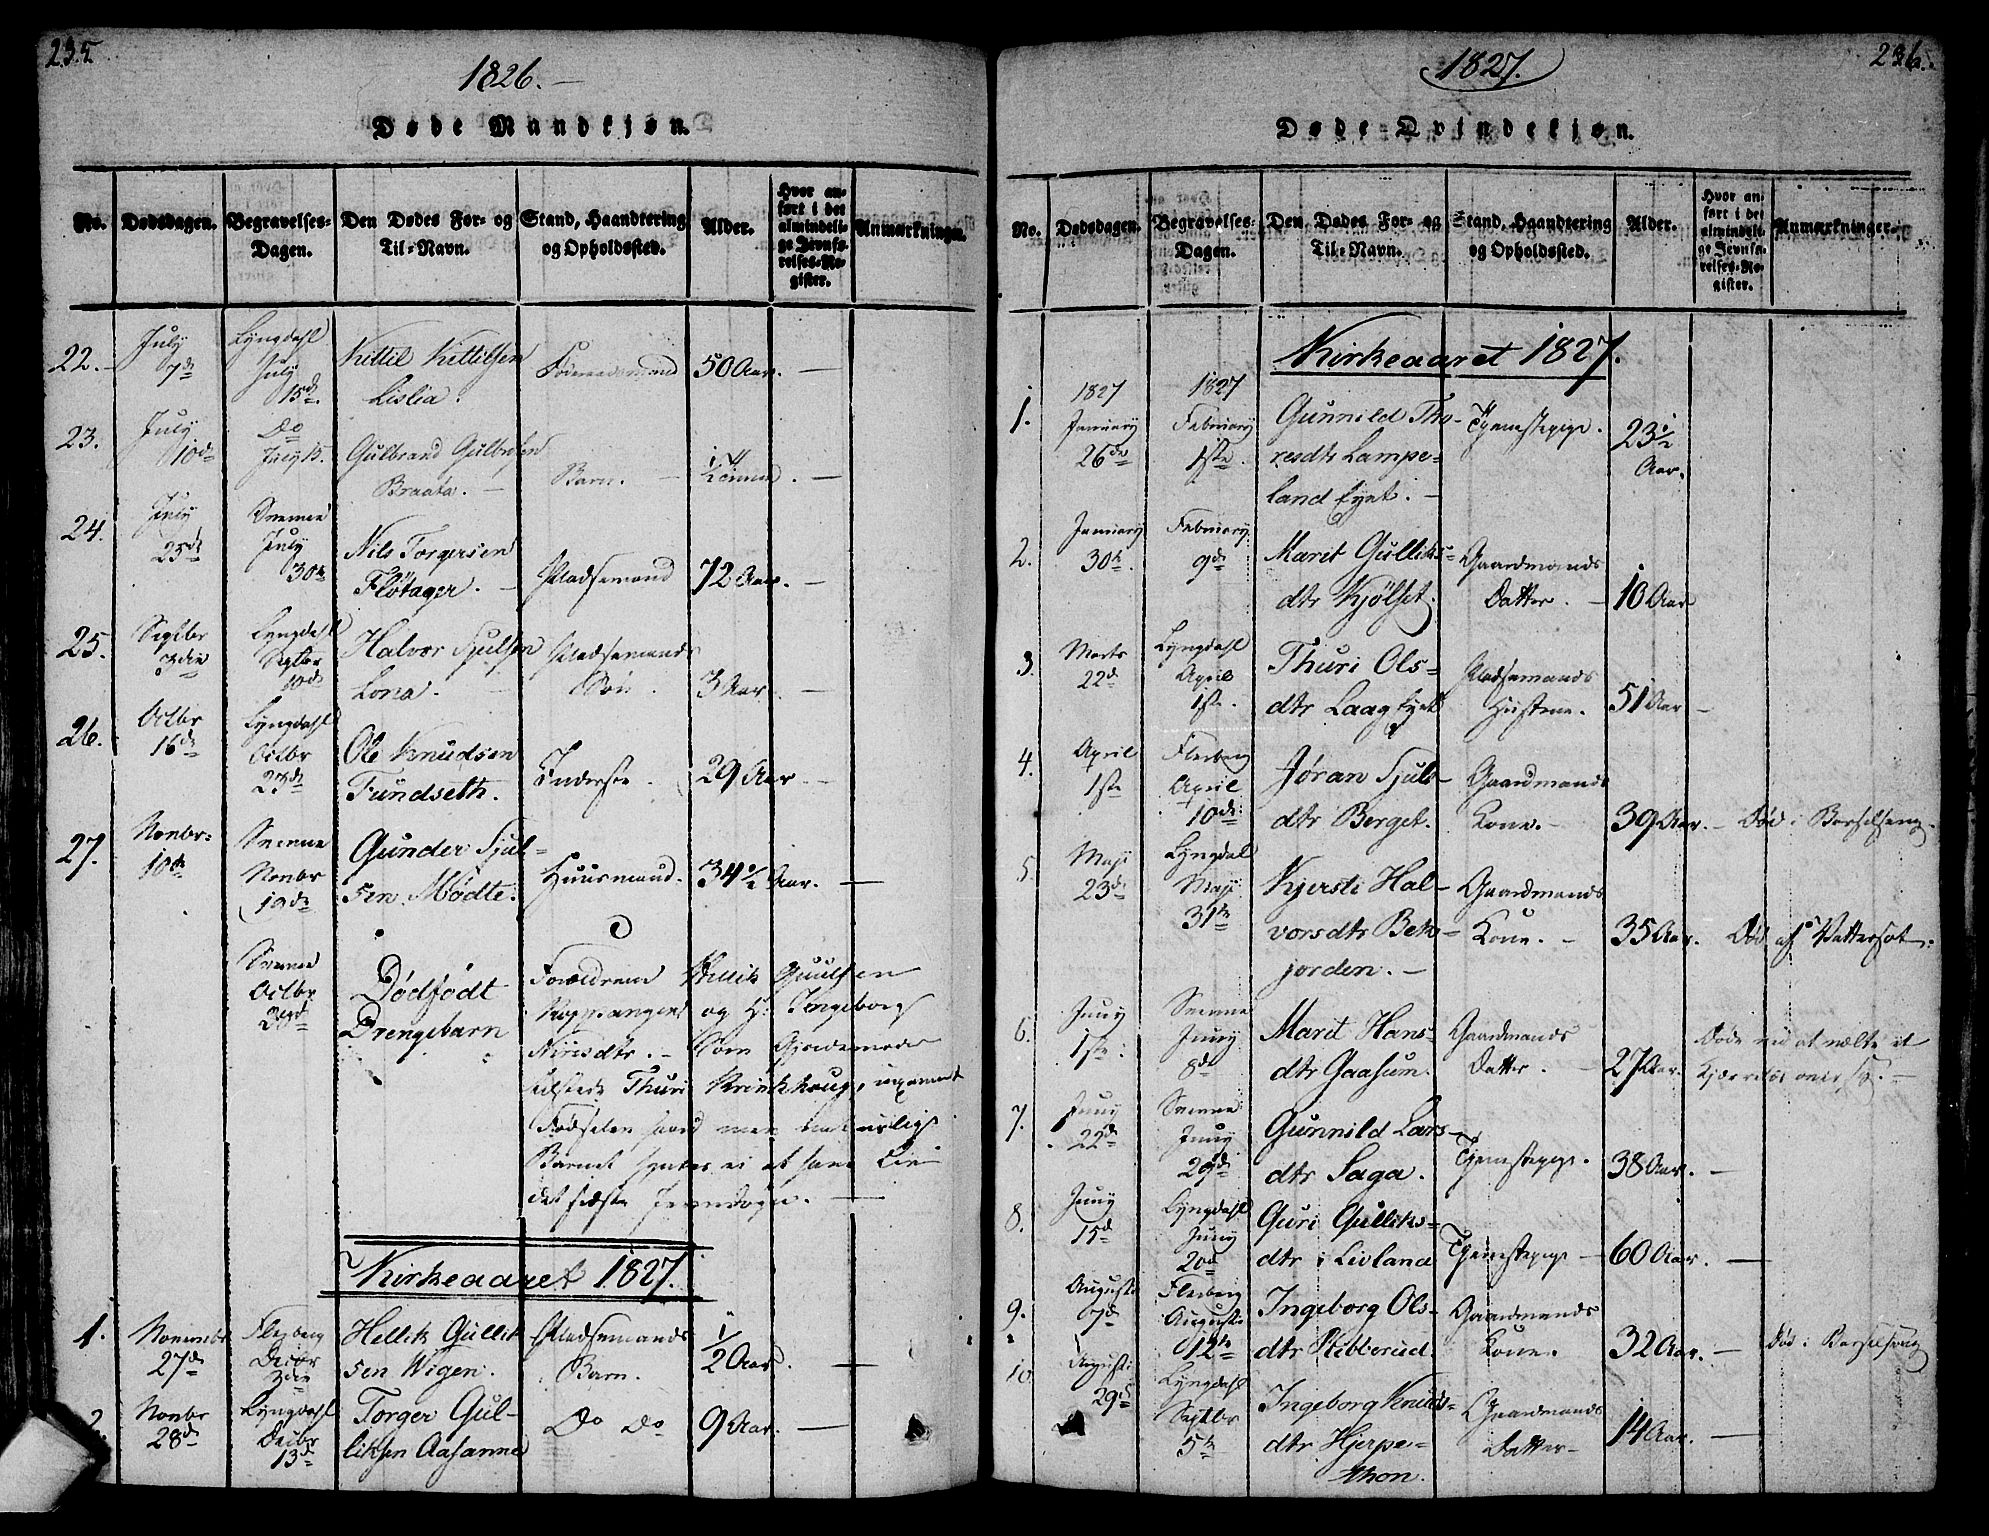 235
1826.
Døde Mandkjøn.
No.
Dødsdagen.
Begravelses-
Dagen.
Den Dødes For- og
Til-Navn.
Stand, Haandtering
og Opholdssted.
Alder.
Hvor an-
ført i det
almindeli-
ge Jevnfø-
relses-Re-
gister.
Anmærkninger.
22.
July
7de
Lyngdahl
July
15de
Kittil Kittilsen
Lislia.
Føderaadsmand
50 Aar.
23.
July
10de
Do
July 15.
Gulbrand Gulbrsen
Braata.
Barn.
24.
July
25de
Svenne
July
30te
Nils Torgersen
Flötager.
Pladsemand
72 Aar.
25.
Septbr
3die
Lyngdahl
Septbr
10de
Halvor Sjulsen
Lona.
Pladsemands
Søn.
3 Aar.
26.
Octbr
16de
Lyngdahl
Octbr
23de
Ole Knudsen
Fundseth.
Inderste.
29 Aar
27.
Novbr:
10de
Svenne
Novbr
19de
Gunder Sjul-
sen Mødte.
Huusmand.
34 1/2 Aar.
Svenne
Octbr
Dödfödt
Drengebarn
Forældrene Hellik Guulsen
og H: Ingeborg
Nirisdtr. Som Gjordemoder
tilstede Thuri
Fødselen haard men naturlig
Barnet
Kirkeaaret 1827.
1.
Novembr
27de
Flesberg
Decbr
3die
Hellik Gullik
sen Wigen.
Pladsemands
Barn.
1/2 Aar.
2.
Novbr
28de
Lyngdahl
Decbr
13de
Torger Gul-
liksen Aasanne
Do Do
9 Aar.
236.
1827.
Døde Qvindekjøn.
No.
Dødsdagen.
Begravelses-
Dagen.
Den Dødes For- og
Til-Navn.
Stand, Haandtering
og Opholdssted.
Alder.
Hvor an-
ført i det
almindeli-
ge Jevnfø-
relses-Re-
gister.
Anmærkninger.
Kirkeaaret 1827.
1.
1827
January
26de
1827
February
1ste
Gunnild Tho-
resdtr Lampe-
land Eyet.
Tjenestepige.
23 1/2
Aar.
2.
January
30te
February
9de
Marit Gulliks-
dtr Kjölset.
Gaardmands
Datter.
10 Aar
3.
Marts
22de
Lyngdahl
April
1ste.
Thuri Ols-
dtr Laag Eyet
Pladsemands
Hustrue.
51 Aar
4.
April
1ste
Flesberg
April
10de
Jøran Sjuls-
dtr Berget.
Gaardmands
Kone.
39 Aar.
Död i Barselseng.
5.
Maji
23de
Lyngdal
Maji
31te
Kjersti Hal-
vorsdtr Bek-
jorden.
Gaardmands
Kone.
35 Aar.
Död af Vattersot.
6.
Juny
1ste
Svenne
Juny
8de
Marit Hans-
dtr Gaasum.
Gaardmands
Datter.
27 Aar.
Döde ved at vælte et
Kjærrelæs over
7.
Juny
22de
Svenne
Juny
29de
Gunnild Lars-
dtr Saga.
Tjenestepige.
38 Aar.
8.
Juny
15de
Lyngdahl
Juny
20de
Guri Gulliks-
dtr i Livland
Tjenestepige
60 Aar.
9.
Augusti
7de
Flesberg
Augusti
12te
Ingeborg Ols-
dtr Stibberud.
Gaardmands
Kone.
32 Aar.
Död i Barselseng
10.
Augusti
29de
Lyngdahl
Septbr
5te
Ingeborg Knuds-
dtr Hjerpe-
thon.
Gaardmands
Datter
14 Aar.